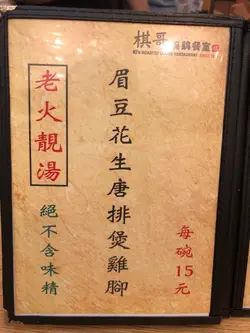 棋哥燒鵝餐室
老火靚湯
絕不含味精
眉豆花生唐排煲雞腳
每碗15元